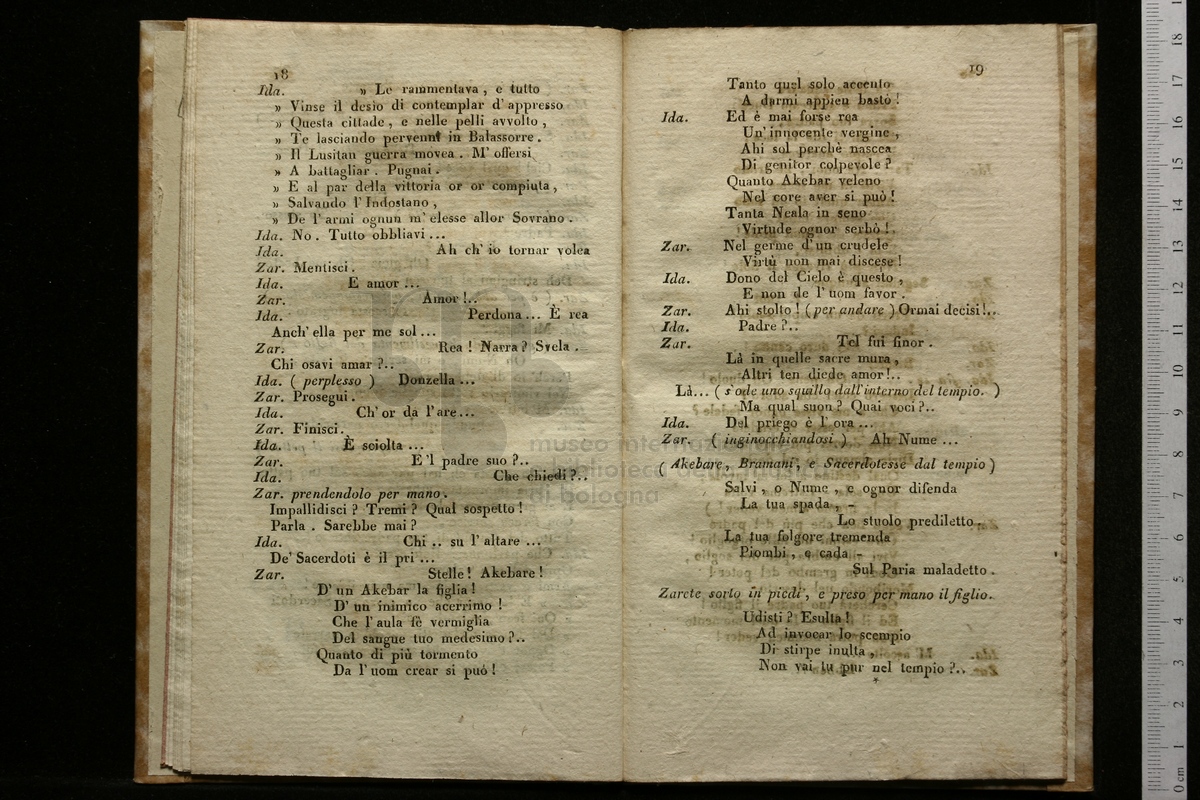 18
Ida. » Le rammentava, e tutto
» Vinse il desìo di contemplar d'appresso
» Questa cittade, e nelle pelli avvolto,
» Te lasciando pervenni in Balassorre.
» Il Lusitan guerra movea. M'offersi
» A battagliar. Pugnai.
» E al par della vittoria or or compiuta,
» Salvando l'Indostano,
» De l'armi ognun m'elesse allor Sovrano.
Ida. No. Tutto obbliavi...
Ida. Ah ch'io tornar volea
Zar. Mentisci.
Ida. E amor...
Zar. Amor!..
Ida. Perdona... È rea
Anch'ella per me sol...
Zar. Rea! Narra? Svela.
Chi osavi amar?..
Ida. ( perplesso ) Donzella...
Zar. Prosegui.
Ida. Ch'or da l'are...
Zar. Finisci.
Ida. È sciolta...
Zar. E'l padre suo?..
Ida. Che chiedi?..
Zar. prendendolo per mano.
Impallidisci? Tremi? Qual sospetto!
Parla. Sarebbe mai?
Ida. Chi.. su l'altare...
De' Sacerdoti è il pri...
Zar. Stelle! Akebare!
D'un Akebar la figlia!
D'un inimico acerrimo!
Che l'aula fè vermiglia
Del sangue tuo medesimo?..
Quanto di più tormento
Da l'uom crear si può!
19
Tanto quel solo accento
A darmi appien bastò!
Ida. Ed è mai forse rea
Un'innocente vergine,
Ahi sol perchè nascea
Di genitor colpevole?
Quanto Akebar veleno
Nel core aver si può!
Tanta Neala in seno
Virtude ognor serbò!
Zar. Nel germe d'un crudele
Virtù non mai discese!
Ida. Dono del Cielo è questo,
E non de l'uom favor.
Zar. Ahi stolto! ( per andare ) Ormai decisi!..
Ida. Padre?..
Zar. Tel fui finor.
Là in quelle sacre mura,
Altri ten diede amor!..
Là... ( s'ode uno squillo dall'interno del tempio. )
Ma qual suon? Quai voci?..
Ida. Del priego è l'ora...
Zar. ( inginocchiandosi ) Ah Nume...
( Akebare, Bramani, e Sacerdotesse dal tempio )
Salvi, o Nume, e ognor difenda
La tua spada, -
Lo stuolo prediletto.
La tua folgore tremenda
Piombi, e cada -
Sul Paria maladetto.
Zarete sorto in piedi, e preso per mano il figlio.
Udisti? Esulta!
Ad invocar lo scempio
Di stirpe inulta,
Non vai tu pur nel tempio?..
*
museo internazionale
biblioteca della musica
di bologna